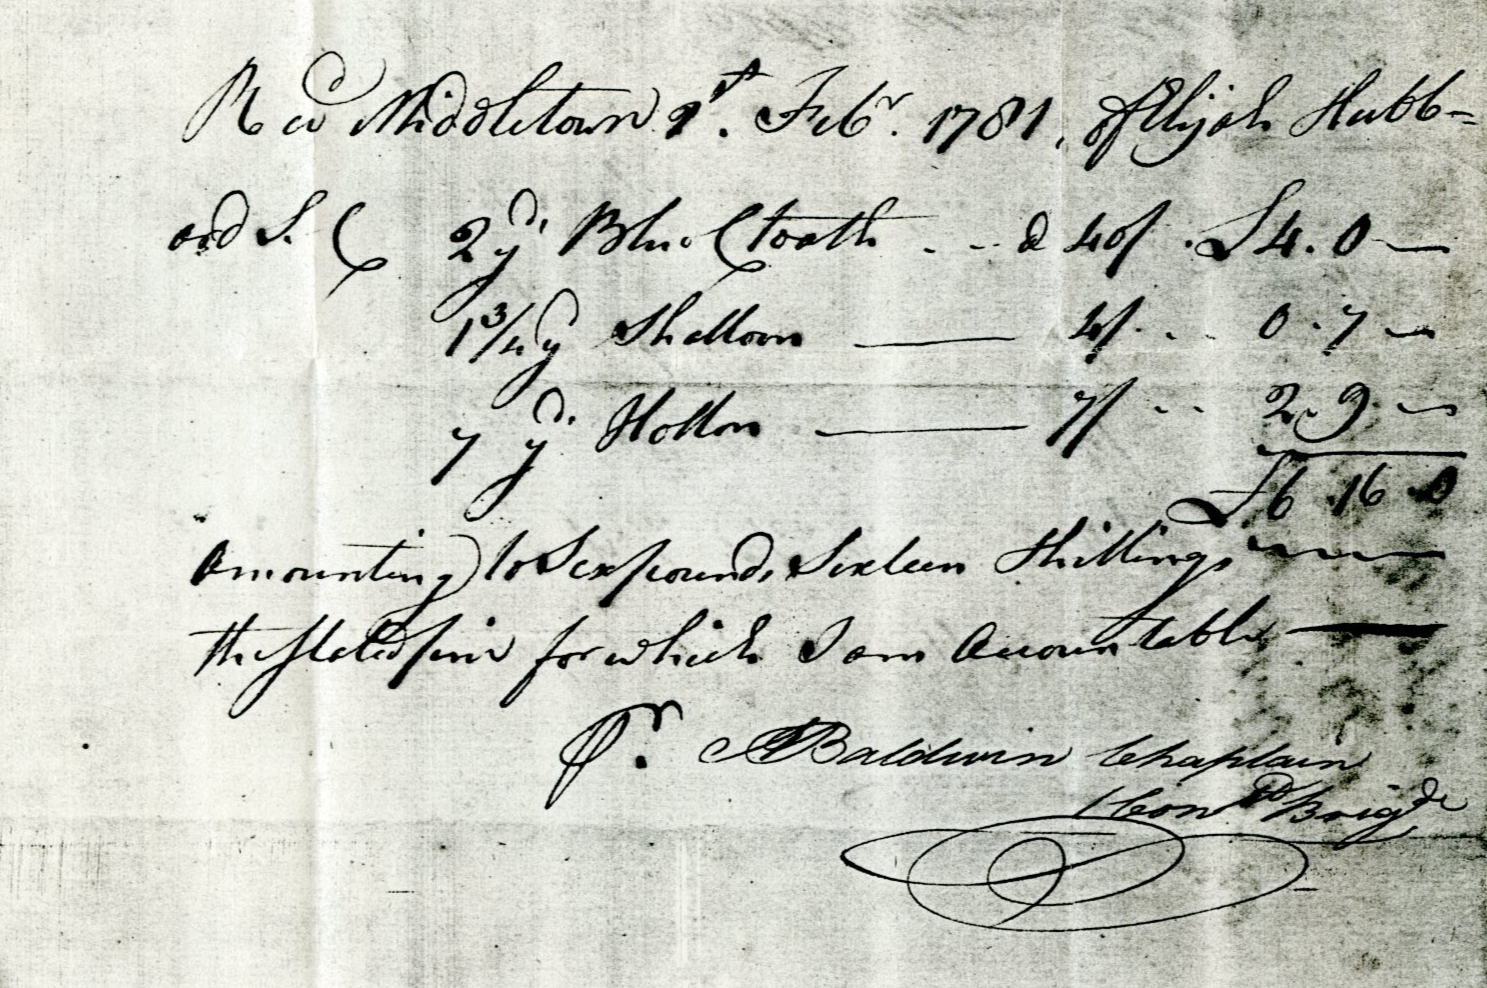 Rec'd Middletown 1st. Febr. 1781, of Elijah Hubb=
ard S. C 2 yd. Blue Cloath . - - a 40/ . £4. 0 —
1 3/4 yd Shalloon —— 4/ . - . 0 . 7 —
7 yd. Hollon —— 7/ - - 2. 9. —
£6 .16 .0
Amounting to Sex pounds Sixteen Shillings
the stated for which I am Accountable ——
Pr. A Baldwin Chaplain
Conctd Brigde